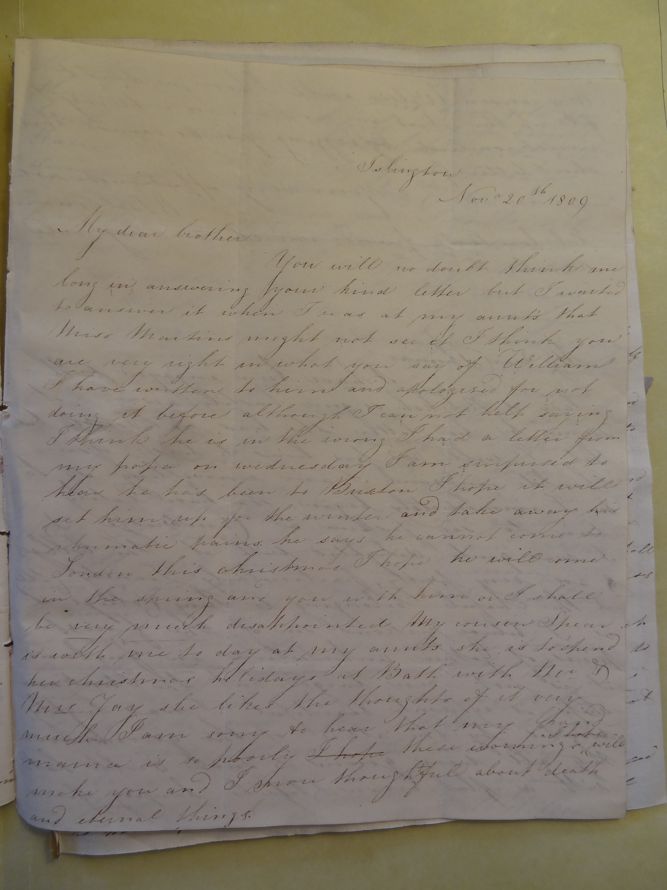 Islington
Nov 20th 1809
My dear brother
You will no doubt think me
long in answering your kind letter but I wanted
to answer it when I was at my aunts that
Miss Martins might not see it I think you
are very right in what you say of William
I have written to him and apologised for not
doing it before although I can not help saying
I think he is in the wrong I had a letter from
my papa on wednesday I am surprised to
hear he has been to Buxton I hope it will
set him up for the winter and take away his
rhumatic pains he says he cannot come to
London this christmas I hope he will come
in the spring and you with him or I shall
be very much disappointed My cousin Spear
is with me to day at my aunts she is to spend
her christmas holidays at Bath with Mr &
Mrs Jay she likes the thoughts of it very
much I am sorry to hear that my grand
mama is so poorly I hope these warnings will
make you and I more thoughtful about death
and eternal things.